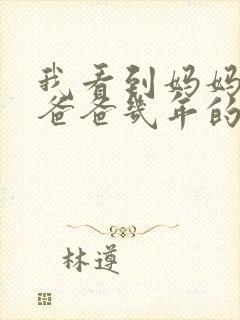 我看到妈妈
爸爸几年的
林遵